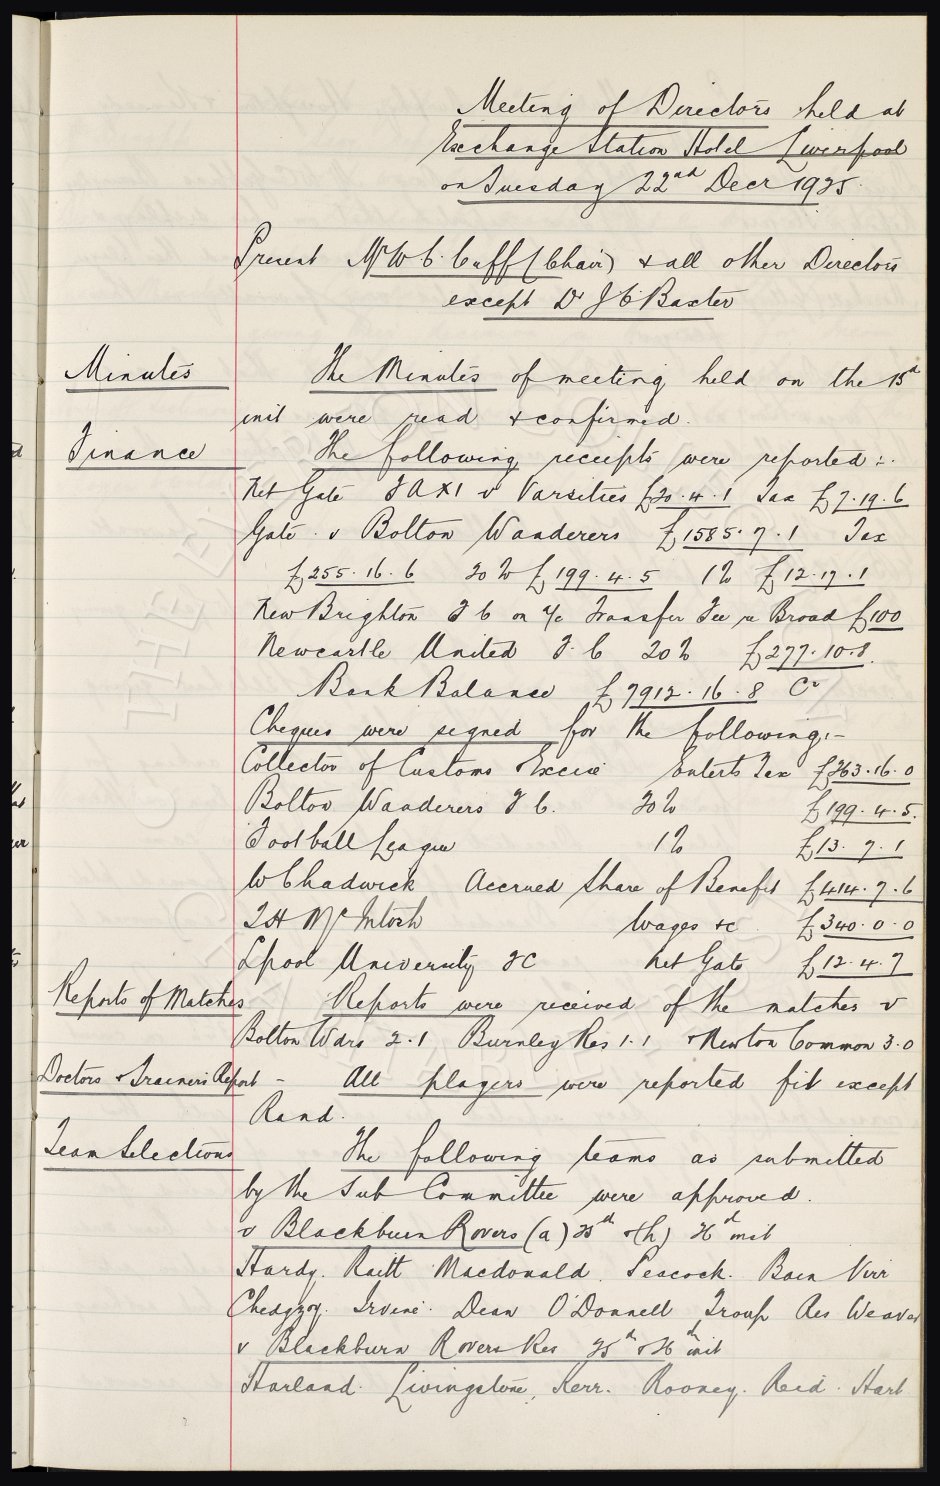 Meeting of Directors held at
Exchange Station Hotel Liverpool
on Tuesday 22nd Decr 1925.
Present Mr W C. Cuff (Chair) & all other Directors
except Dr J C Baxter
Minutes
The Minutes of meeting held on the 15th
inst were read & confirmed.
Finance
The following receipts were reported :-
Net Gate "A" XI v Varsities £20.4.1 Tax £7.19.6
Gate v Bolton Wanderers £1585.7.1 Tax
£255.16.6 20% £199.4.5 1% £12.17.1
New Brighton F C on a/c Transfer Fee re Broad £100
Newcastle United F. C 20% £277.10.8.
Bank Balance £7912.16.8 Cr
Cheques were signed for the following:-
Collector of Customs & Excise Enterts Tax £263.16.0
Bolton Wanderers F C. 20% £199.4.5.
Football League 1% £13.7.1
W Chadwick Accrued Share of Benefit £414.7.6
T H McIntosh Wages &c £340.0.0
Lpool University F C Net Gate £12.4.7
Reports of Matches
Reports were received of the matches v
Bolton Wdrs 2.1 Burnley Res 1.1 & Newton Common 3.0
Doctors & Trainers Report -
All players were reported fit except
Rand.
Team Selections
The following teams as submitted
by the Sub Committee were approved.
v Blackburn Rovers (a) 25th & (h) 26th inst
Hardy. Raitt Macdonald. Peacock. Bain Virr
Chedgzoy. Irvine. Dean O'Donnell Troup Res Weaver
v Blackburn Rovers Res 25th & 26th inst
Harland. Livingstone, Kerr. Rooney. Reid. Hart